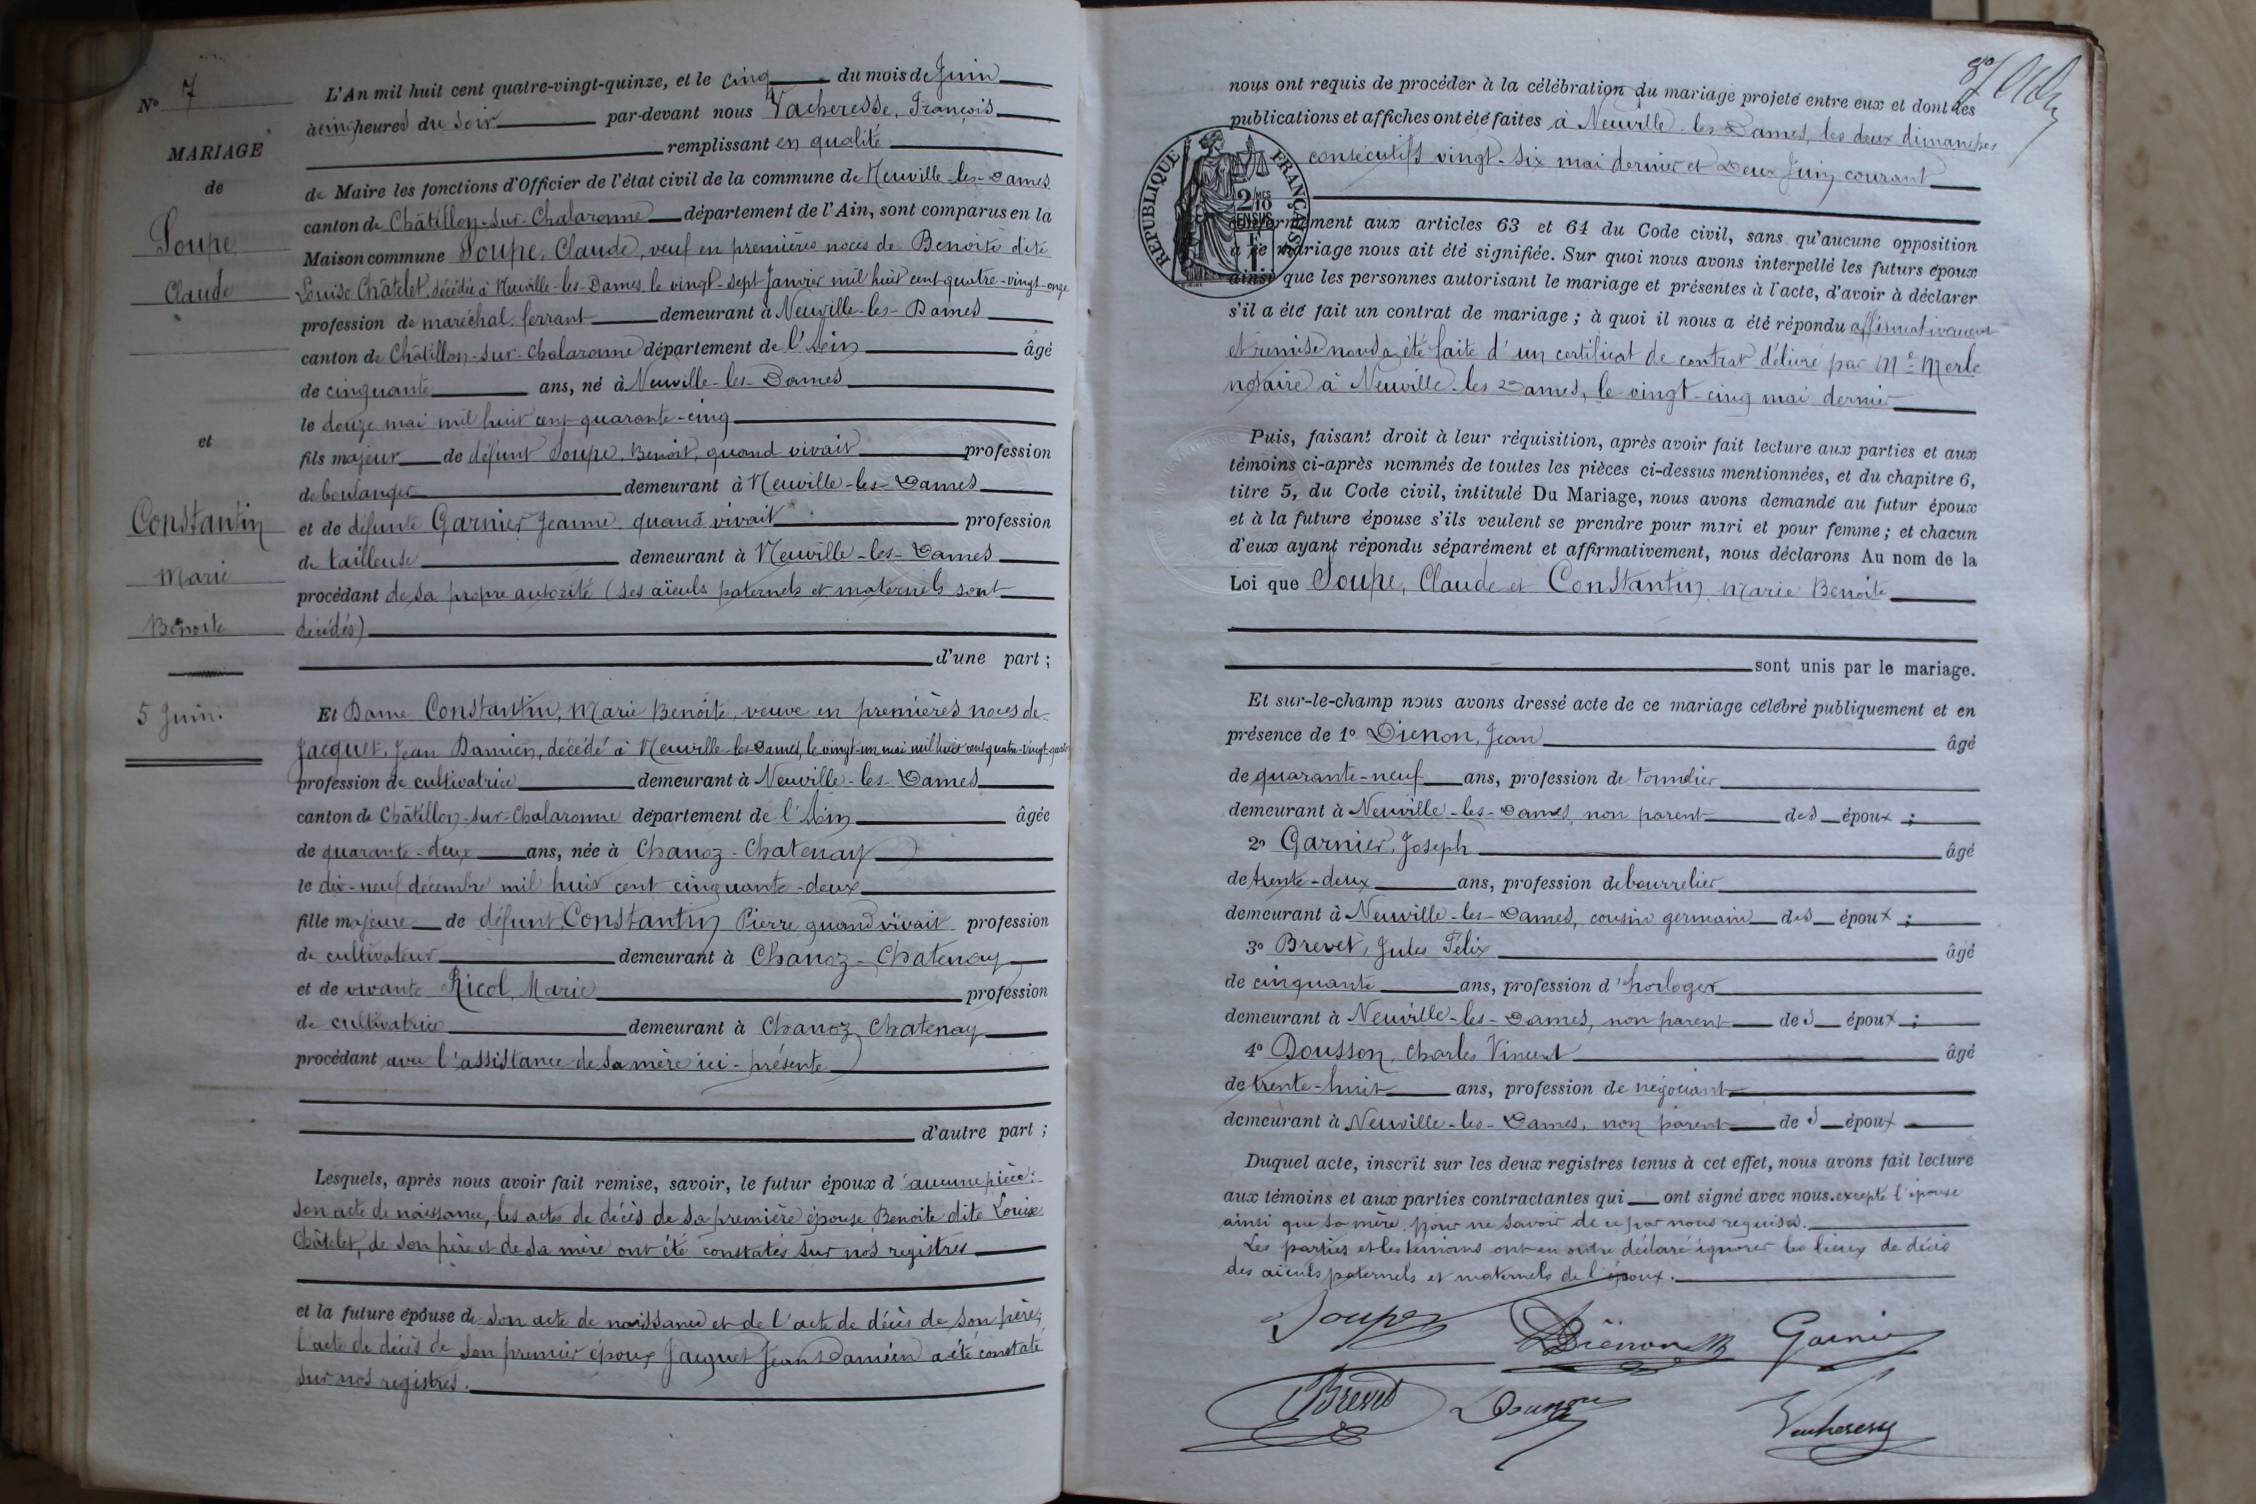 N° 7
MARIAGE
de
Soupe
Claude
et
Constantin
Marie
Benoite
5 Juin.
L'An mil huit cent quatre-vingt-quinze, et le cinq du mois de Juin
à cinq heures du soir par-devant nous Vacheresse, François
remplissant en qualité
de Maire les fonctions d'Officier de l'état civil de la commune de Neuville-les-Dames
canton de Châtillon-sur-Chalaronne département de l'Ain, sont comparus en la
Maison commune Soupe, Claude, veuf en premières noces de Benoite dite
Louise Châtelet, décédée à Neuville-les-Dames, le vingt-sept Janvier mil huit cent quatre-vingt-onze
profession de maréchal ferrant demeurant à Neuville-les-Dames
canton de Châtillon-sur-Chalaronne département de l'Ain âgé
de cinquante ans, né à Neuville-les-Dames
le douze mai mil huit cent quarante-cinq
fils majeur de défunt Soupe, Benoit, quand vivait profession
de boulanger demeurant à Neuville-les-Dames
et de défunte Garnier Jeanne quand vivait profession
de tailleuse demeurant à Neuville-les-Dames
procédant de sa propre autorité (ses aïeuls paternels et maternels sont
décédés)
d'une part ;
Et Dame Constantin, Marie Benoite, veuve en premières noces de
Jacquet, Jean Damien, décédé à Neuville-les-Dames, le vingt-un mai mil huit cent quatre-vingt-quatre
profession de cultivatrice demeurant à Neuville-les-Dames
canton de Châtillon-sur-Chalaronne département de l'Ain âgée
de quarante-deux ans, née à Chanoz-Chatenay
le dix-neuf décembre mil huit cent cinquante-deux
fille majeure de défunt Constantin Pierre quand vivait profession
de cultivateur demeurant à Chanoz-Chatenay
et de vivante Ricol, Marie profession
de cultivatrice demeurant à Chanoz Chatenay
procédant avec l'assistance de sa mère ici-présente
d'autre part ;
Lesquels, après nous avoir fait remise, savoir, le futur époux d'aucune pièce :
son acte de naissance, les actes de décès de sa première épouse Benoite dite Louise
Châtelet, de son père et de sa mère ont été constatés sur nos registres
et la future épouse de son acte de naissance et de l'acte de décès de son père ;
l'acte de décès de son premier époux Jacquet Jean Damien a été constaté
sur nos registres.
8e
nous ont requis de procéder à la célébration du mariage projeté entre eux et dont les
publications et affiches ont été faites à Neuville-les-Dames, les deux dimanches
consécutifs vingt-six mai dernier et Deux Juin courant
RÉPUBLIQUE FRANÇAISE
2/10 EN SUS
conformément aux articles 63 et 64 du Code civil, sans qu'aucune opposition
à ce mariage nous ait été signifiée. Sur quoi nous avons interpellé les futurs époux
ainsi que les personnes autorisant le mariage et présentes à l'acte, d'avoir à déclarer
s'il a été fait un contrat de mariage ; à quoi il nous a été répondu affirmativement
et remise nous a été faite d'un certificat de contrat délivré par Me Merle
notaire à Neuville-les-Dames, le vingt-cinq mai dernier
Puis, faisant droit à leur réquisition, après avoir fait lecture aux parties et aux
témoins ci-après nommés de toutes les pièces ci-dessus mentionnées, et du chapitre 6,
titre 5, du Code civil, intitulé Du Mariage, nous avons demandé au futur époux
et à la future épouse s'ils veulent se prendre pour mari et pour femme ; et chacun
d'eux ayant répondu séparément et affirmativement, nous déclarons Au nom de la
Loi que Soupe, Claude et Constantin Marie Benoite
sont unis par le mariage.
Et sur-le-champ nous avons dressé acte de ce mariage célébré publiquement et en
présence de 1° Dienon, Jean âgé
de quarante-neuf ans, profession de tonnelier
demeurant à Neuville-les-Dames, non parent des époux ;
2° Garnier, Joseph âgé
de trente-deux ans, profession de bourrelier
demeurant à Neuville-les-Dames, cousin germain des époux ;
3° Brevet, Jules Félix âgé
de cinquante ans, profession d'horloger
demeurant à Neuville-les-Dames, non parent des époux ;
4° Dousson, Charles Vincent âgé
de trente-huit ans, profession de négociant
demeurant à Neuville-les-Dames, non parent des époux
Duquel acte, inscrit sur les deux registres tenus à cet effet, nous avons fait lecture
aux témoins et aux parties contractantes qui ont signé avec nous excepté l'épouse
ainsi que sa mère, pour ne savoir de ce par nous requises.
Les parties et les témoins ont en outre déclaré ignorer les lieux de décès
des aïeuls paternels et maternels de l'époux.
Soupe Dienon Garnier
Brevet Dousson Vacheresse